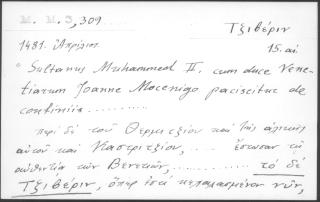 M. M. 3, 309.
Τζιβέριν
1481. Ἀπρίλιος.
15. αἰ
"Sultanus Muhammed II. cum duce Vene-
tiarum Joanne Mocenigo paciscitur de
confiniis ..........
περὶ δὲ τοῦ Θερμιτζίου καὶ τῆς ἁλικῆς
αὐτοῦ καὶ Καστριτζίου, .... ἔστωσαν τῇ
αὐθεντίᾳ τῶν Βενετικῶν, ........ τὸ δὲ
Τζιβέριν, ὅπερ ἔστι χαλασμένον νῦν,